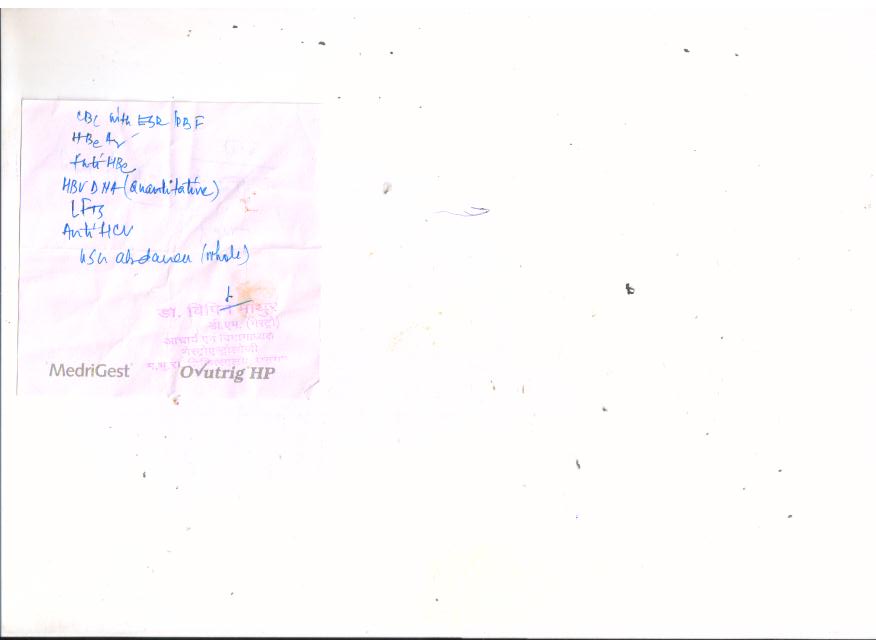 CBC with ESR PBF
HBeAg
Anti HBe
HBV DNA (Quantitative)
LFTs
Anti HCV
USG abdomen (whole)
डॉ. विपिन माथुर
डी.एम. (गेस्ट्रो)
आचार्य एवं विभागाध्यक्ष
MedriGest Ovutrig HP